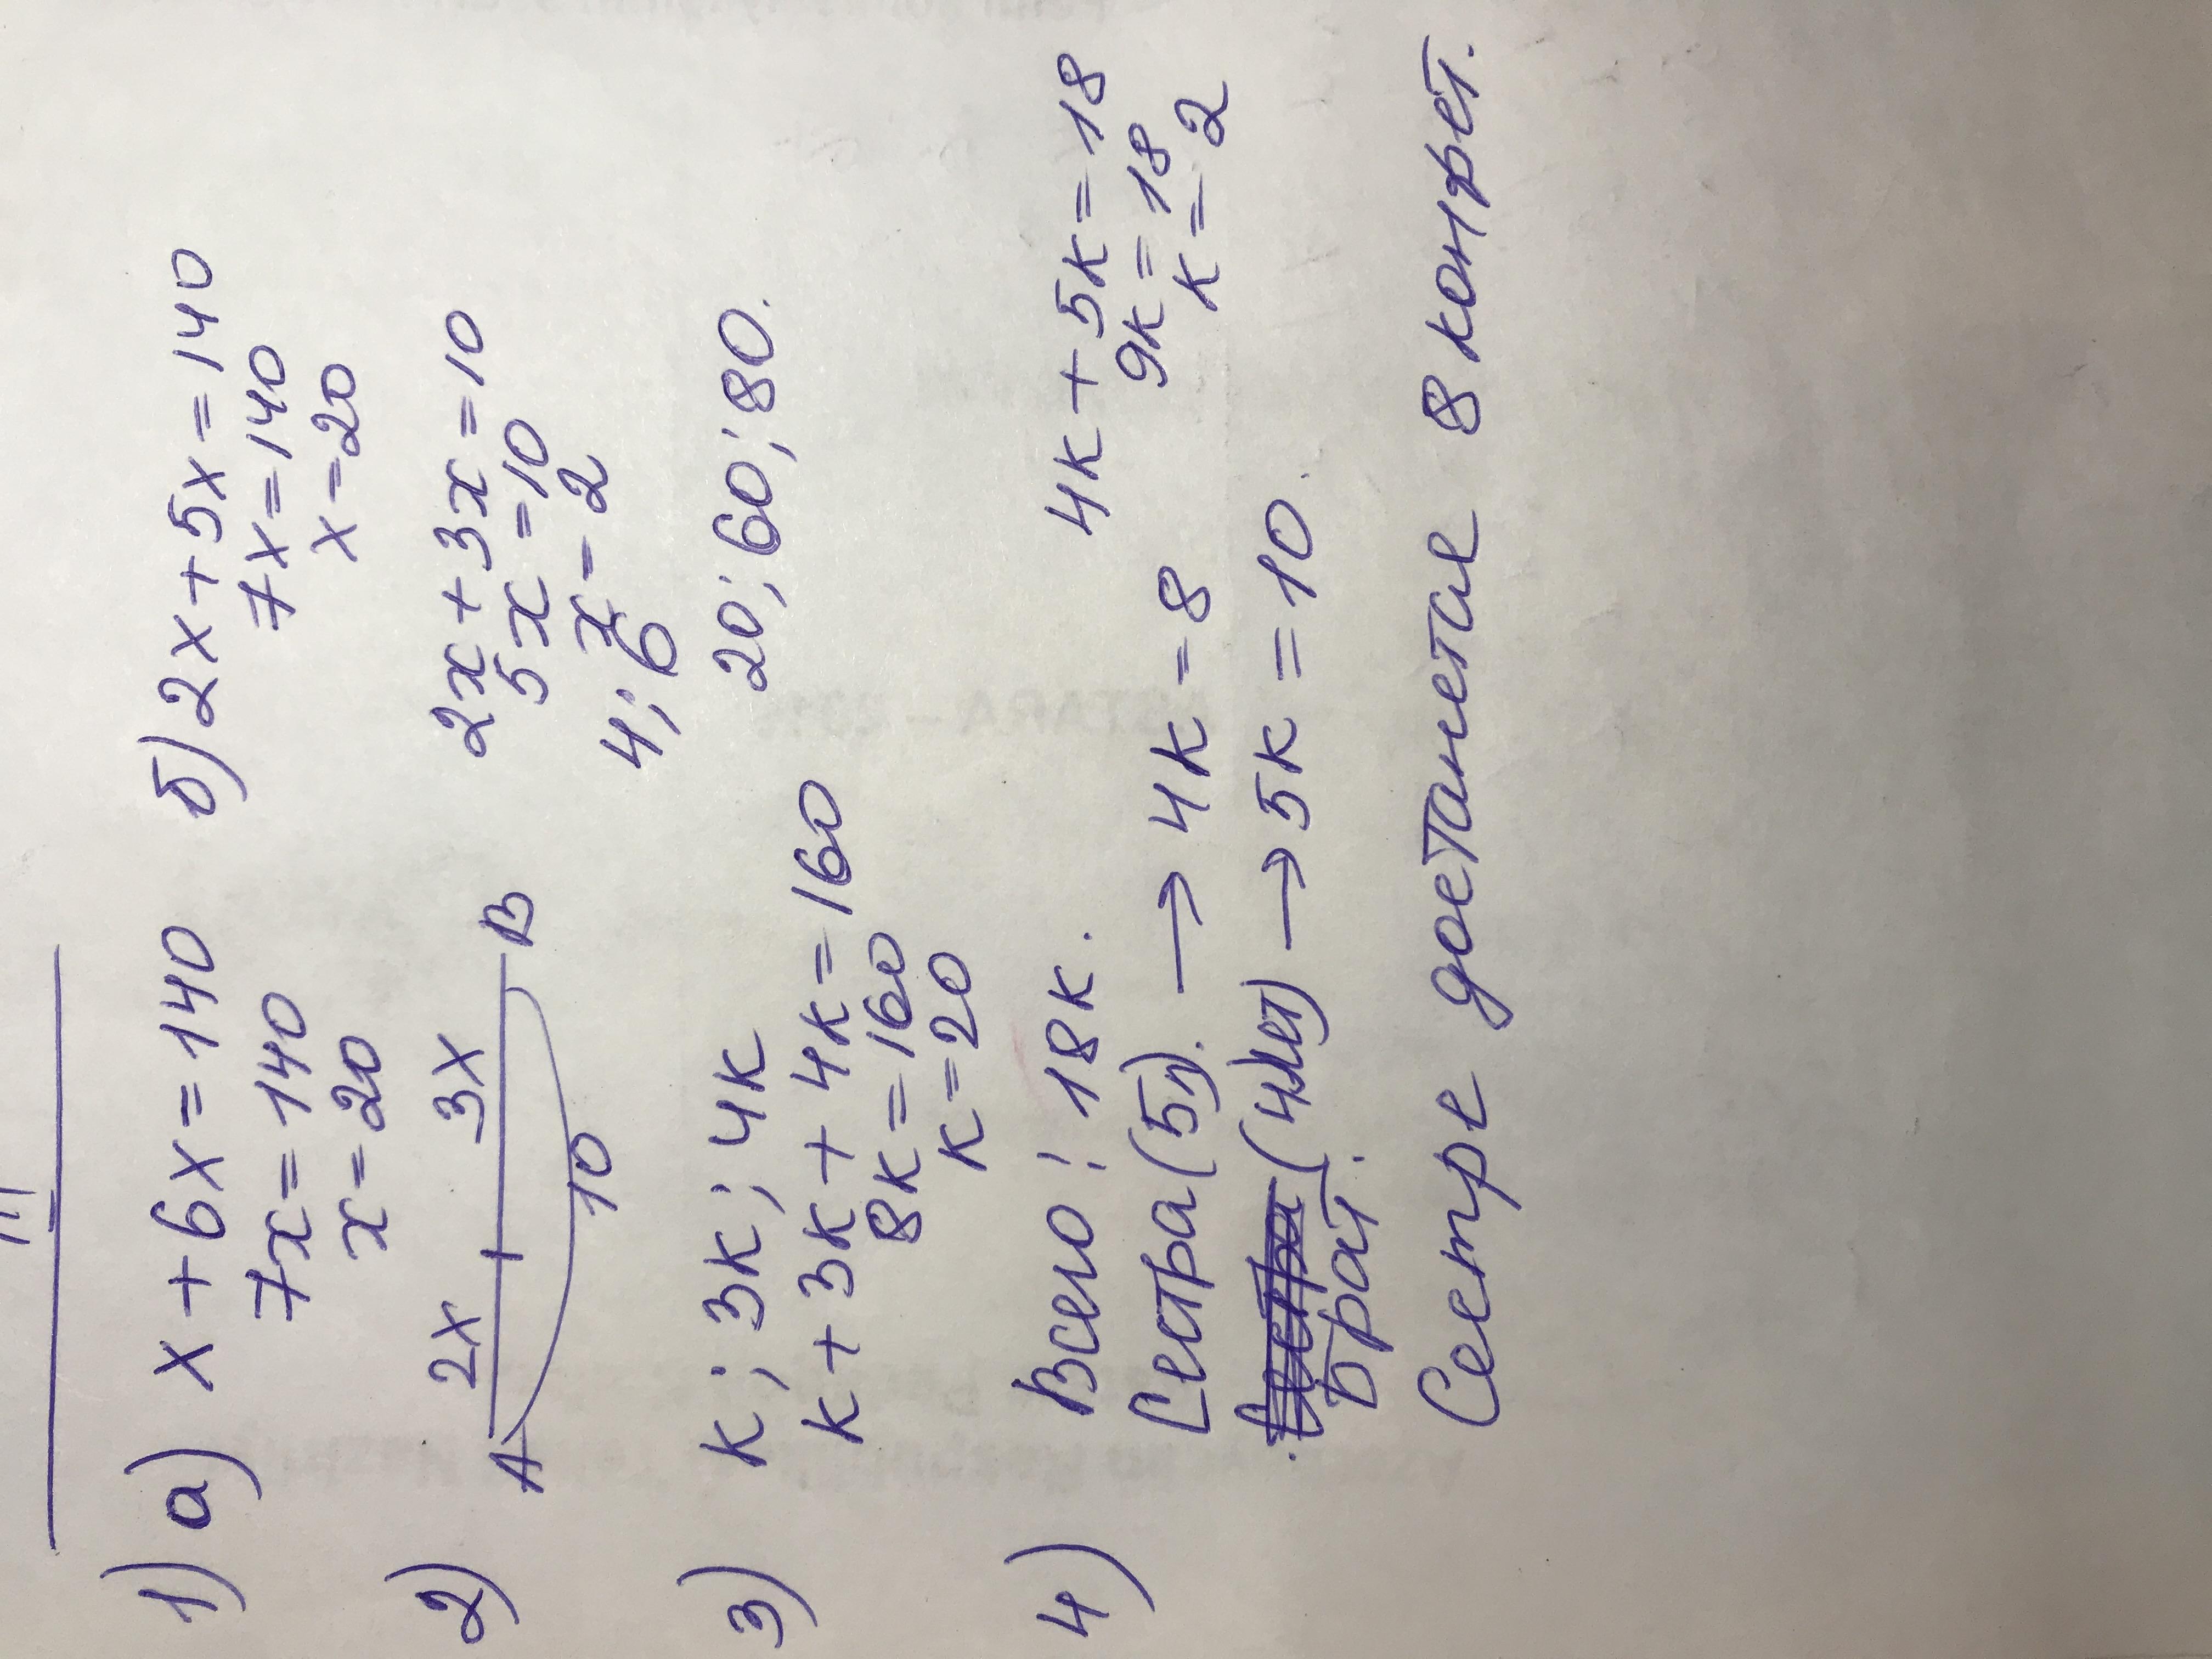 1) а) x + 6x = 140 б) 2x + 5x = 140
7x = 140 7x = 140
x = 20 x = 20
2) 2x 3x 2x + 3x = 10
A B 5x = 10
10 x = 2
4; 6
3) к; 3к; 4к 20; 60; 80.
к + 3к + 4к = 160
8к = 160
к = 20
4) Всего: 18к. 4к + 5к = 18
Сестра (5л). → 4к = 8 9к = 18
(4лет) → 5к = 10. к = 2
брат.
Сестре достанется 8 конфет.